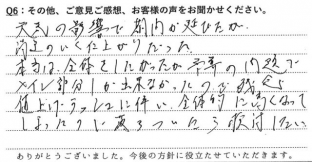 Q6：その他、ご意見ご感想、お客様の声をお聞かせください。
天気の影響で期間が延びたが、
満足のいく仕上りだった
本当は、全体をしたかったが予算の問題で
メイン部分しか出来なかったので残念
値上げラッシュに伴い、全体的に高くなって
しまったのに落ちついたら検討したい
ありがとうございました。今後の方針に役立たせていただきます。